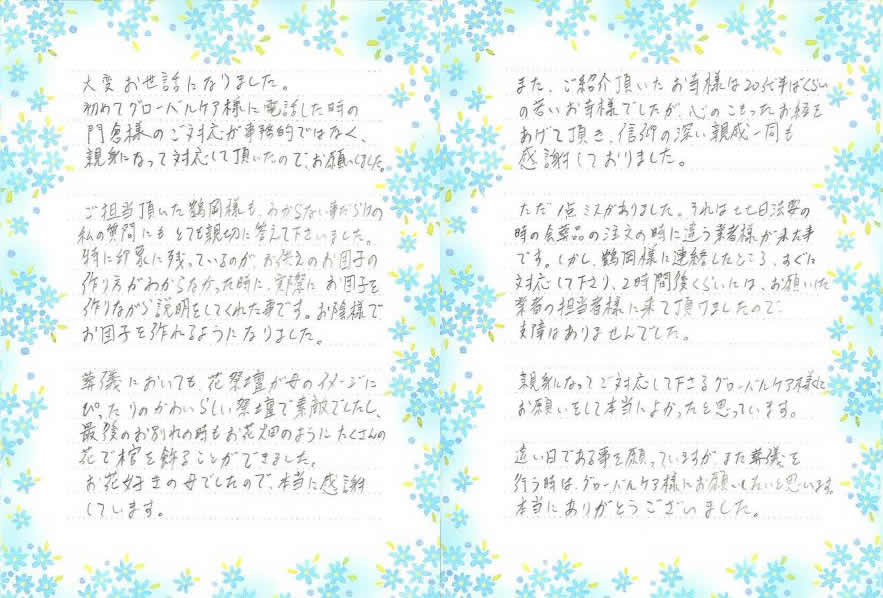 大変お世話になりました。
初めてグローバルケア様に電話した時の
門倉様のご対応が事務的ではなく、
親身になって対応して頂いたので、お願いしました。
ご担当頂いた鶴岡様も、わからない事だらけの
私の質問にもとても親切に答えて下さいました。
特に印象に残っているのが、お供えのお団子の
作り方がわからなかった時に、実際にお団子を
作りながら説明をしてくれた事です。お陰様で
お団子を作れるようになりました。
葬儀においても、花祭壇が母のイメージに
ぴったりのかわいらしい祭壇で素敵でしたし、
最後のお別れの時もお花畑のようにたくさんの
花で棺を飾ることができました。
お花好きの母でしたので、本当に感謝
しています。
また、ご紹介頂いたお寺様は20代半ばくらい
の若いお寺様でしたが、心のこもったお経を
あげて頂き、信仰の深い親戚一同も
感謝しておりました。
ただ1点ミスがありました。それは七七日法要の
時の会葬品の注文の時に違う業者様が来た事
です。しかし、鶴岡様に連絡したところ、すぐに
対応して下さり、2時間後くらいには、お願いした
業者の担当者様に来て頂けましたので、
支障はありませんでした。
親身になってご対応して下さるグローバルケア様に
お願いをして本当によかったと思っています。
遠い日である事を願っていますが、また葬儀を
行う時は、グローバルケア様にお願いしたいと思います。
本当にありがとうございました。